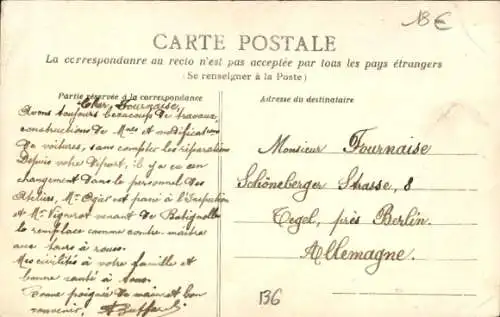 18€
CARTE POSTALE
La correspondance au recto n'est pas acceptée par tous les pays étrangers
(Se renseigner à la Poste)
Partie réservée à la correspondance
Adresse du destinataire
Cher Fournaise,
Avons toujours beaucoup de travaux,
constructions de Mnes et modification
de voitures, sans compter les réparations
Depuis votre départ, il y a eu un
changement dans le personnel des
Ateliers, Mr Ogier est passé à l'Inspection
et Mr Vignerot venant de Batignolles
le remplace comme contre-maître
aux tours à roues.
Mes civilités à votre famille et
bonne santé à tous.
Bonne poignée de main et bon
souvenir,
Monsieur Fournaise
Schöneberger Strasse, 8
Tegel, près Berlin.
Allemagne.
136